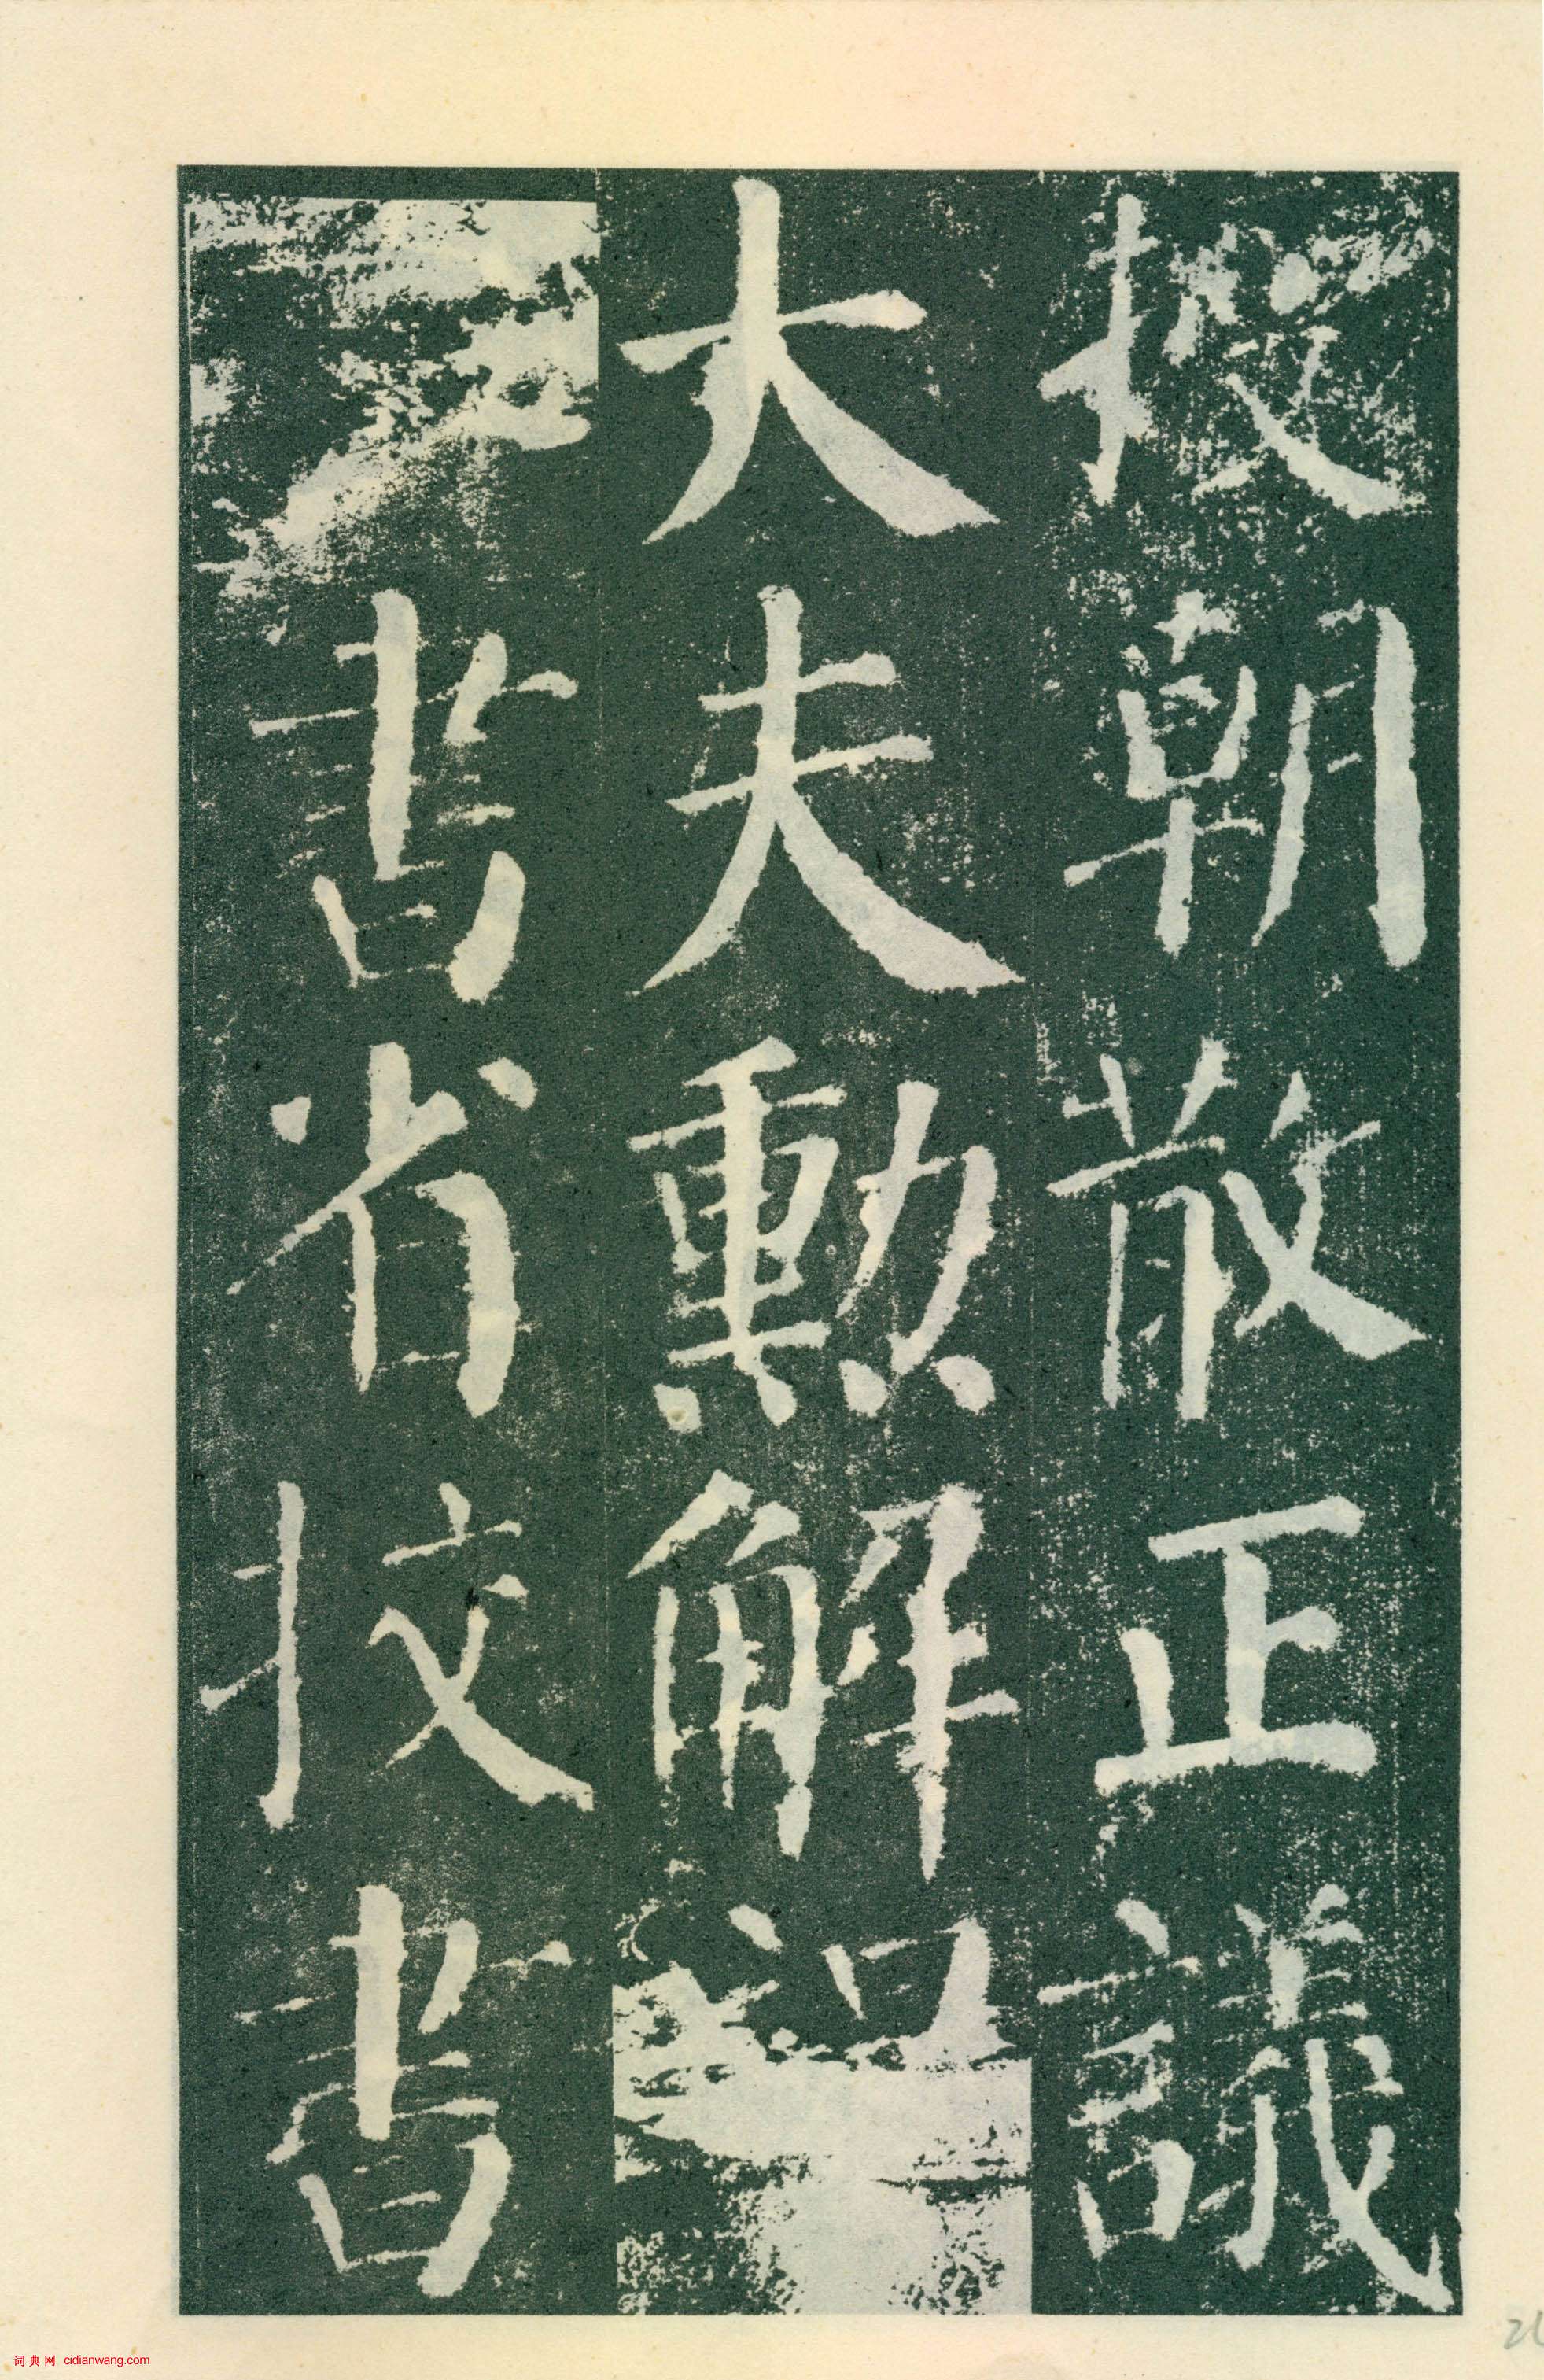 授朝散正議
大夫勳解
書省挍書
词典网 cidianwang.com
21